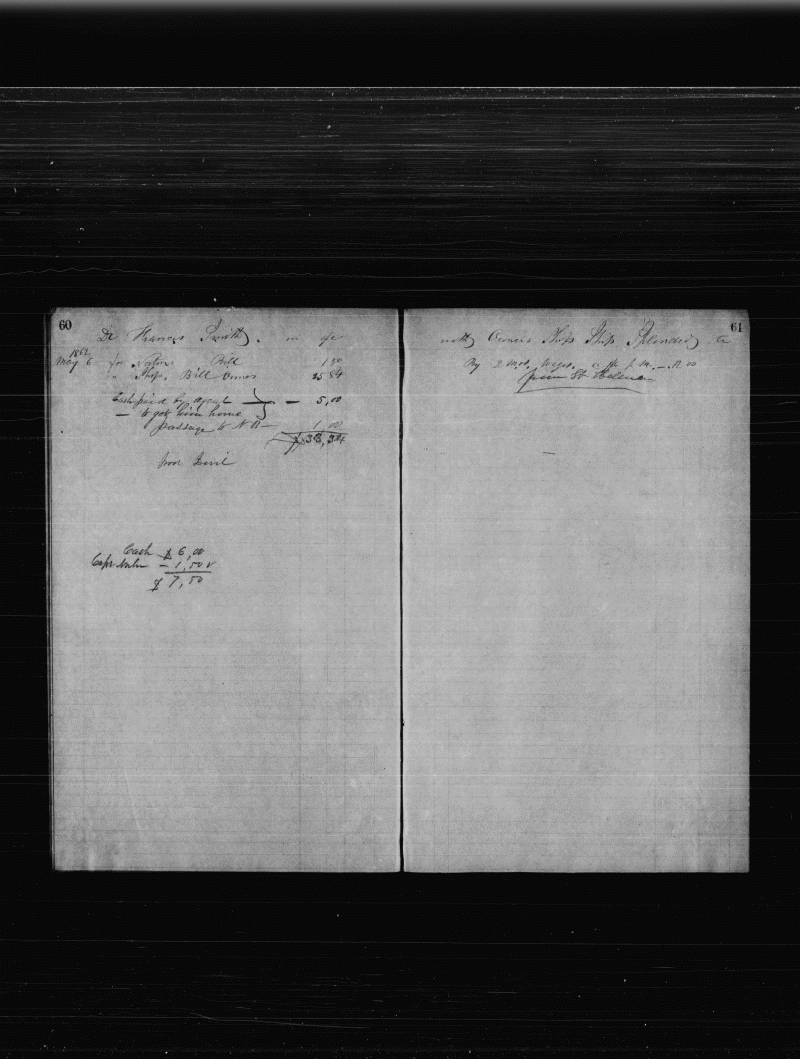 60
Dr Frances Smith in a/c
1862
May 6 for Bill 1 50
" Ships Bill Owners 25 84
Cash paid by agent — 5,00
— to get him home
passage to N B — 1,00
$ 33,34
poor Devil
Cash $ 6,00
Capt — 1,50 v
$ 7,50
61
with Owners Ship Splendid Cr
By 2 mos. Wages, p m —
from St Helena